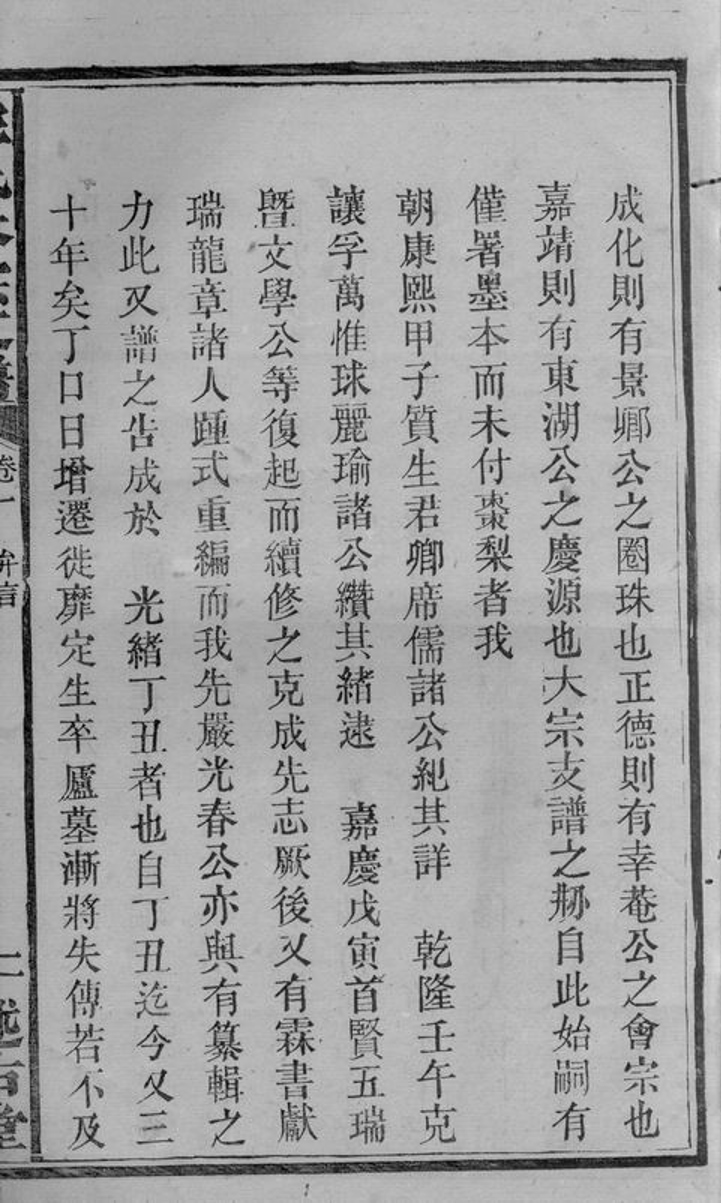 成化則有景卿公之圈珠也正德則有幸菴公之會宗也
嘉靖則有東湖公之慶源也大宗支譜之刱自此始嗣有
僅署墨本而未付棗梨者我
朝康熙甲子質生君卿席儒諸公紀其詳　乾隆壬午克
讓孚萬惟球麗瑜諸公纘其緒逮　嘉慶戊寅首賢五瑞
暨文學公等復起而續修之克成先志厥後又有霖書獻
瑞龍章諸人踵式重編而我先嚴光春公亦與有纂輯之
力此又譜之告成於　光緒丁丑者也自丁丑迄今又三
十年矣丁口日增遷徙靡定生卒廬墓漸將失傳若不及
卷一　弁言